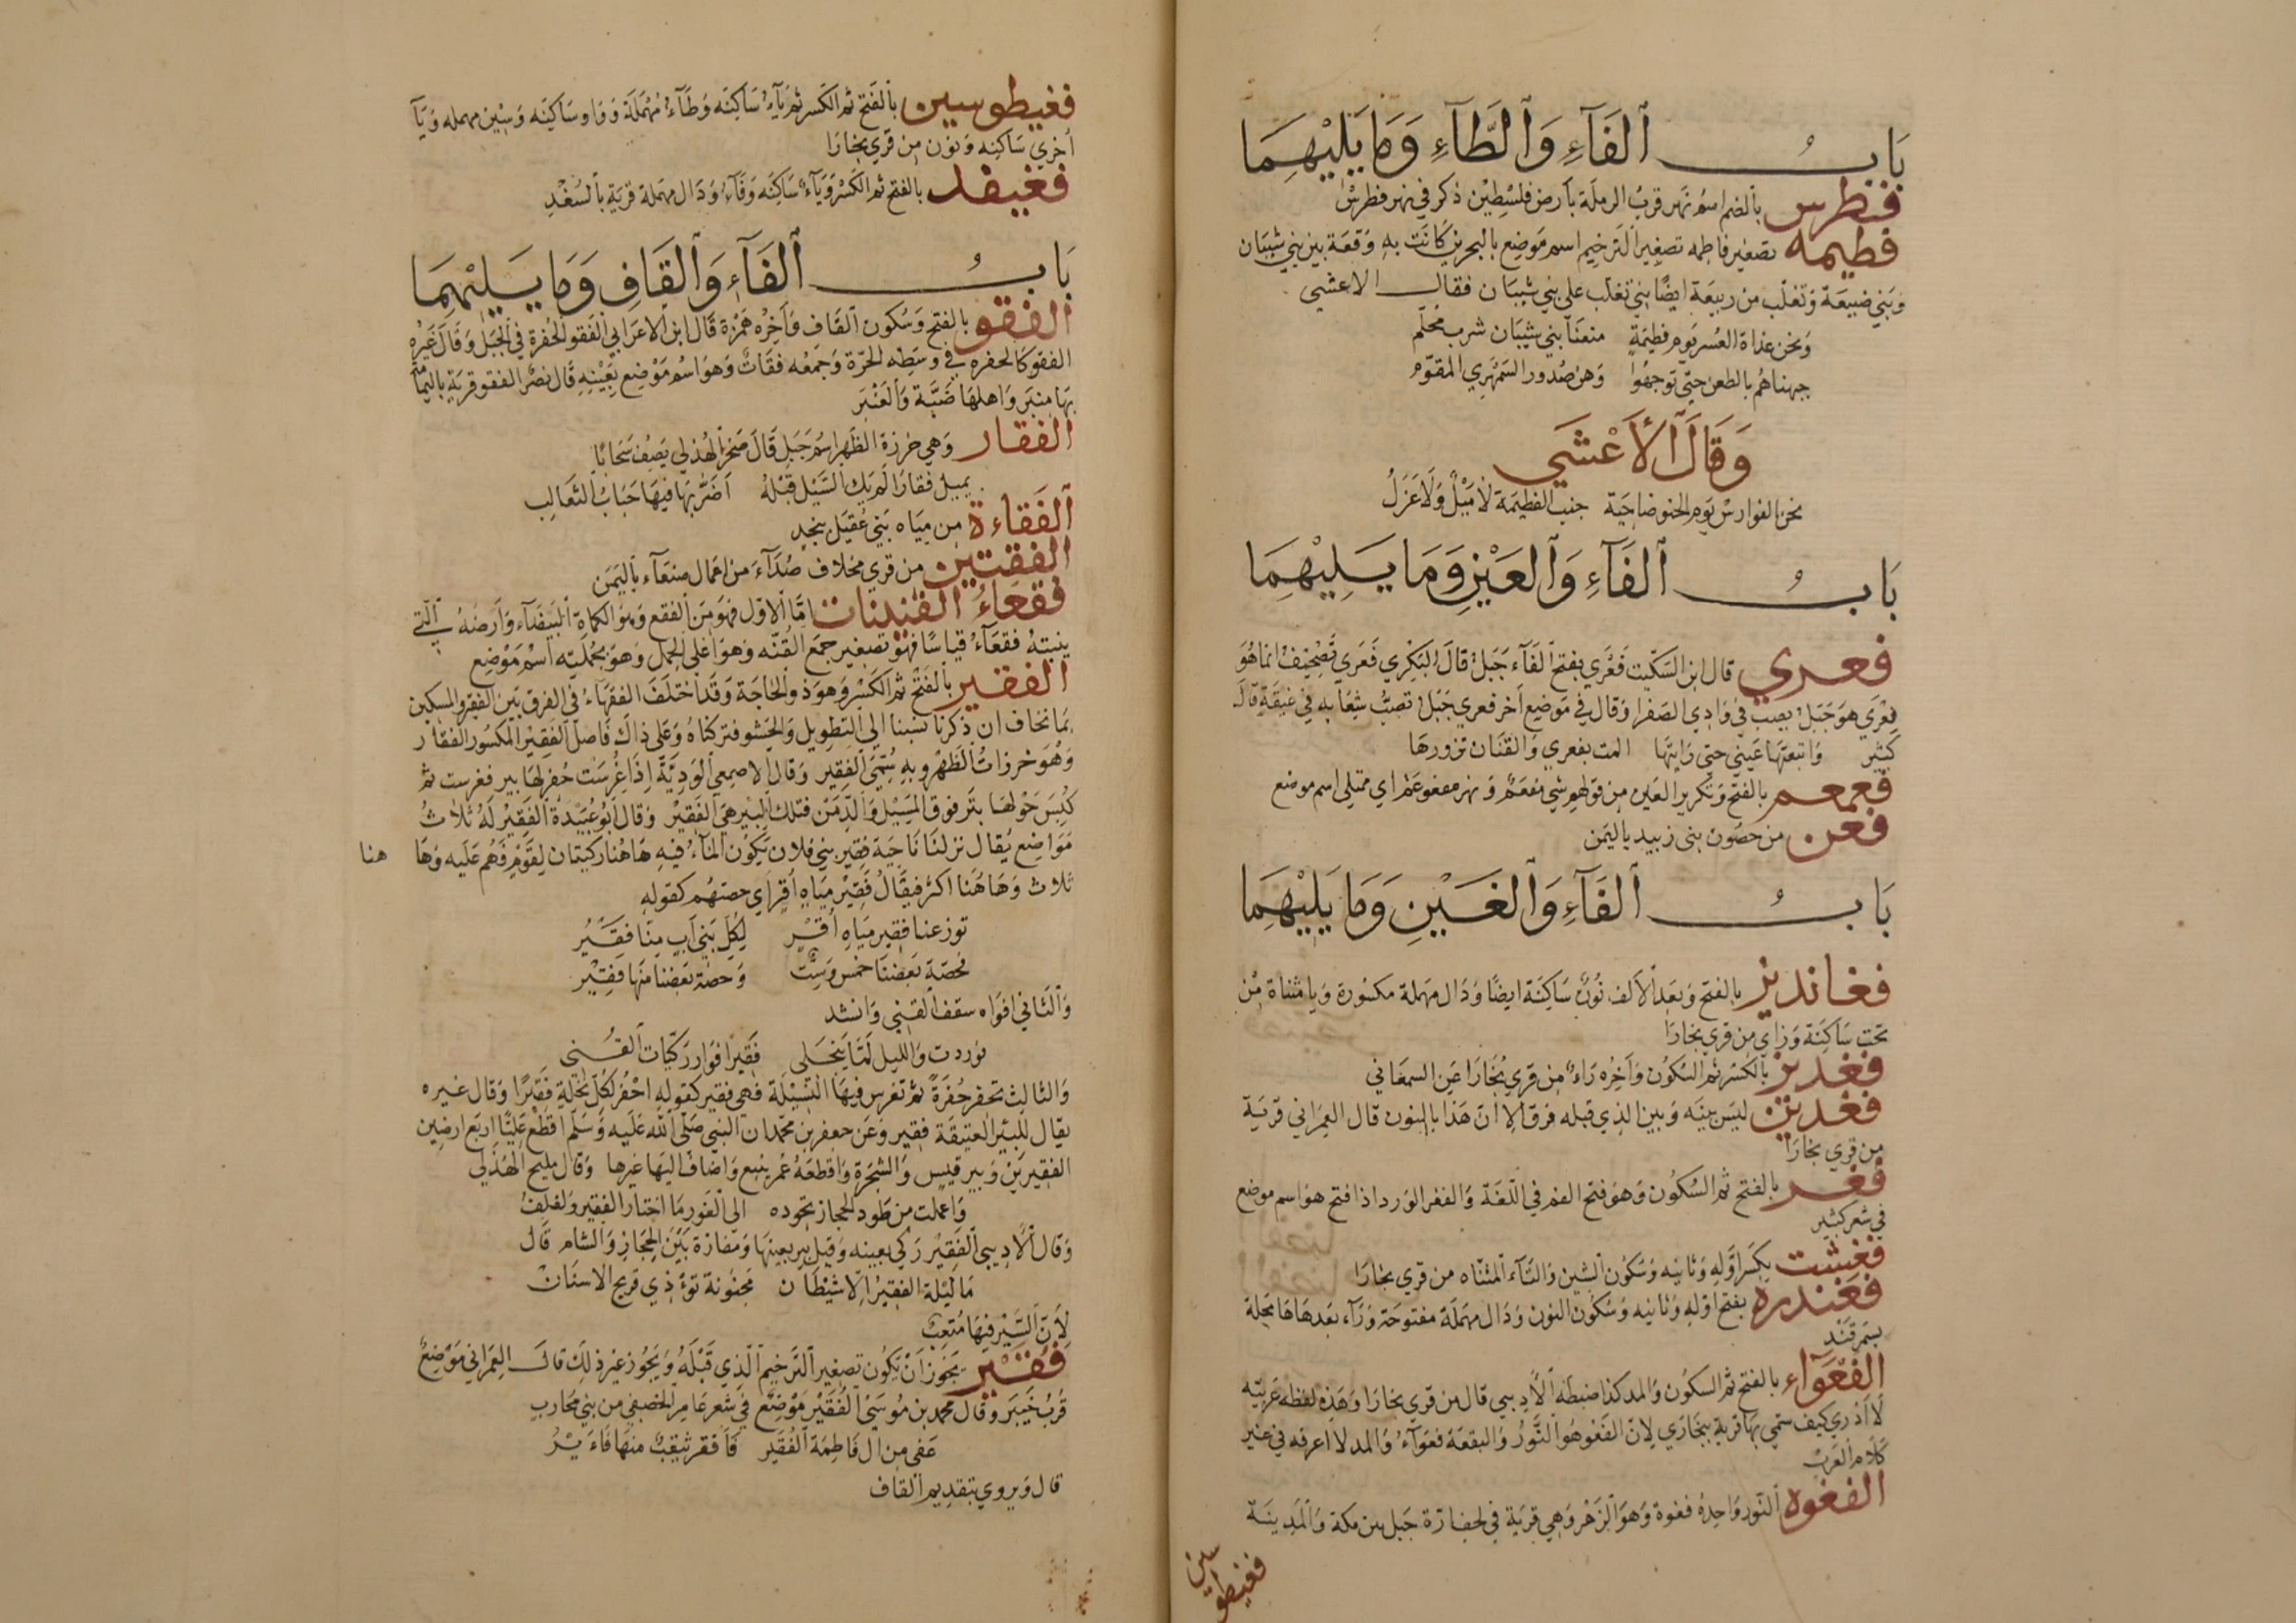 باب الفآء والطآء وما يليهما
فطرس بالضم اسم نهر قرب الرملة بارض فلسطين ذكر في نهر فطرس
فطيمه تصغير فاطمه تصغير الترخيم اسم موضع بالبحرين كانت به وقعة بين بني شيبان
وبني ضبيعة وتغلب من ربيعة ايضًا بني تغلب على بني شيبان فقال الاعشي
ونحن غداة العسر يوم فطيمة منعنا بني شيبان شرب محلم
جبهناهم بالطعن حتى توجهوا وهن صدور السمهري المقوم
وقال الأعشي
نحن الفوارس يوم الحنو ضاحية جنب الفطيمة لا ميل ولا عزل
باب الفآء والعين وما يليهما
فعري قال ابن السكيت فعري بفتح الفآء جبل قال البكري فعري تصحيف انما هو
فعري هو جبل يصب في وادي الصفرا وقال في موضع آخر فعري جبل تصب شعابه في غيقة قال
كثير واتبعتها عيني حتى رايتها المت بفعري والقنان تزورها
فعمعم بالفتح وتكرير العين من قولهم شي مفعم ونهر مفعوعم اي ممتلي اسم موضع
فعن من حصون بني زبيد باليمن
باب الفآء والغين وما يليهما
فغانديز بالفتح وبعد الالف نون ساكنة ايضا ودال مهملة مكسورة ويا مثناة من
تحت ساكنة وزاي من قري بخارا
فغديز بالكسر ثم السكون وآخره راء من قري بخارا عن السمعاني
فغدين ليس بينه وبين الذي قبله فرق الا ان هذا بالنون قال العمراني قرية
من قري بخارا
فغر بالفتح ثم السكون وهو فتح الفم في اللغة والفغر الورد اذا فتح هو اسم موضع
في شعر كثير
فغشت بكسر اوله وثانيه وسكون الشين والتآء المثناه من قري بخارا
فغندره بفتح اوله وثانيه وسكون النون ودال مهملة مفتوحة ورآء بعدها ها محلة
بسمرقند
الفغوآء بالفتح ثم السكون والمد كذا ضبطه الأديبي قال من قري بخارا وهذه لفظه عربيه
لا ادري كيف سمي بها قرية ببخاري لان الفغو هو النور والبقعة فغوآء والمد لا اعرفه في غير
كلام العرب
الفغوه النور واحده فغوة وهو الزهر وهي قرية في لحف آرة جبل بين مكة والمدينة
فغيطوسين
فغيطوسين بالفتح ثم الكسر ثم يآء ساكنه وطآء مهملة وواو ساكنه وسين مهمله ويآ
اخري ساكنه ونون من قري بخارا
فغيفد بالفتح ثم الكسر ويآء ساكنه وفآء ودال مهملة قرية بالسغد
باب الفآء والقاف وما يليهما
الفقو بالفتح وسكون القاف وآخره همزة قال ابن الاعرابي الفقو الحفرة في الجبل وقال غيره
الفقو كالحفره في وسطه الحرة وجمعه فقات وهو اسم موضع بعينه قال نصر الفقو قرية باليمامة
بها منبر واهلها ضبة والعنبر
الفقار وهي خرزة الظهر اسم جبل قال صخر الهذلي يصف سحابا
يميل فقارا لم يك السيل قبله اضر بها فيها حباب الثعالب
الفقاءة من مياه بني عقيل بنجد
الفقتين من قري مخلاف صدآء من اعمال صنعآء باليمن
فقعاء القنينات اما الاول فهو من الفقع وهو الكماة البيضآء وارضه التي
ينبته فقعآء قياسا فهو تصغير جمع القنه وهو اعلى الجبل وهو بجملته اسم موضع
الفقير بالفتح ثم الكسر وهو ذو الحاجة وقد اختلف الفقهاء في الفرق بين الفقير والمسكين
بما نخاف ان ذكرنا نسبنا الي التطويل والحشو فتركناه وعلى ذلك فاصل الفقير المكسور الفقار
وهو خرزات الظهر وبه سمي الفقير وقال الاصمعي الودية اذا غرست حفر لها بير فغرست ثم
كبس حولها بترفوق المسيل والدمن فتلك البير هي الفقير وقال ابو عبيدة الفقير له ثلاث
مواضع يقال نزلنا ناحية فقير بني فلان يكون المآء فيه هاهنا ركيتان لقوم فهم عليه وها هنا
ثلاث وهاهنا اكثر فيقال فقير مياه اقر اي حصتهم كقوله
توزعنا فقير مياه اقر لكل بني اب منا فقير
فحصة بعضنا خمس وست وحصة بعضنا منها فقير
والثاني افواه سقف القني وانشد
فوردت والليل لما ينجلى فقيرا فوار ركيات القني
والثالث تحفر حفرة ثم تغرس فيها الفسيلة فهي فقير كقوله احفر لكل نخلة فقيرا وقال غيره
يقال للبئر العتيقة فقير وعن جعفر بن محمد ان النبي صلى الله عليه وسلم اقطع عليا اربع ارضين
الفقيرين وبير قيس والشجرة واقطعه عمر ينبع واضاف اليها غيرها وقال مليح الهذلي
واعملت من طود الحجاز نجوده الى الغور ما اجتاز الفقير ولفلف
وقال الأديبي الفقير ركي بعينه وقيل بير بعينها ومفازة بين الحجاز والشام قال
ما ليلة الفقير الا شيطان مجنونة تؤذي قريح الاسنان
لأن السير فيها متعب
فقير يجوز ان تكون تصغير الترخيم الذي قبله ويجوز غير ذلك قال العمراني موضع
قرب خيبر وقال محمد بن موسى الفقير موضع في شعر عامر الخصفي من بني محارب
عفى من ال فاطمة الفقير فاقفر يثقب منها فاء يير
قال ويروي بتقديم القاف